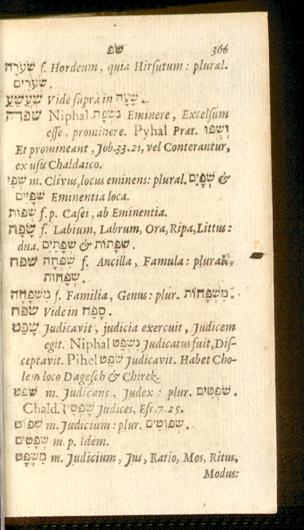 שפ 366
שְׂעֹרָה f. Hordeum, quia Hirsutum: plural.
שְׂעֹרִים.
שִׁעֲשֵׁעַ Vide suprà in שָׁעָה.
שפה Niphal נִשְׁפָּה Eminere, Excelsum
esse, prominere. Pyhal Præt. וְשֻׁפּוּ
Et promineant, Job.33.21, vel Conterantur,
ex usu Chaldaico.
שְׁפִי m. Clivus, locus eminens: plural. שְׁפָיִם &
שְׁפָיִים Eminentia loca.
שְׁפוֹת f.p. Casei, ab Eminentia.
שָׂפָה f. Labium, Labrum, Ora, Ripa, Littus:
dua. שְׂפָתַיִם & שְׂפָתוֹת.
שפח שִׁפְחָה f. Ancilla, Famula: plural.
שְׁפָחוֹת
מִשְׁפָּחָה f. Familia, Genus: plur. מִשְׁפָּחוֹת.
שפח Vide in סָפַח.
שָׁפַט Judicavit, judicia exercuit, Judicem
egit. Niphal נִשְׁפַּט Judicatus fuit, Dis-
ceptavit. Pihel שֹׁפֵט Judicavit. Habet Cho-
lem loco Dagesch & Chirek.
שֹׁפֵט m. Judicans, Judex: plur. שֹׁפְטִים.
Chald. שָׁפְטִין Judices, Esr. 7.25.
שְׁפוֹט m. Judicium: plur. שְׁפוּטִים.
שְׁפָטִים m. p. Idem.
מִשְׁפָּט m. Judicium, Jus, Ratio, Mos, Ritus,
Modus: